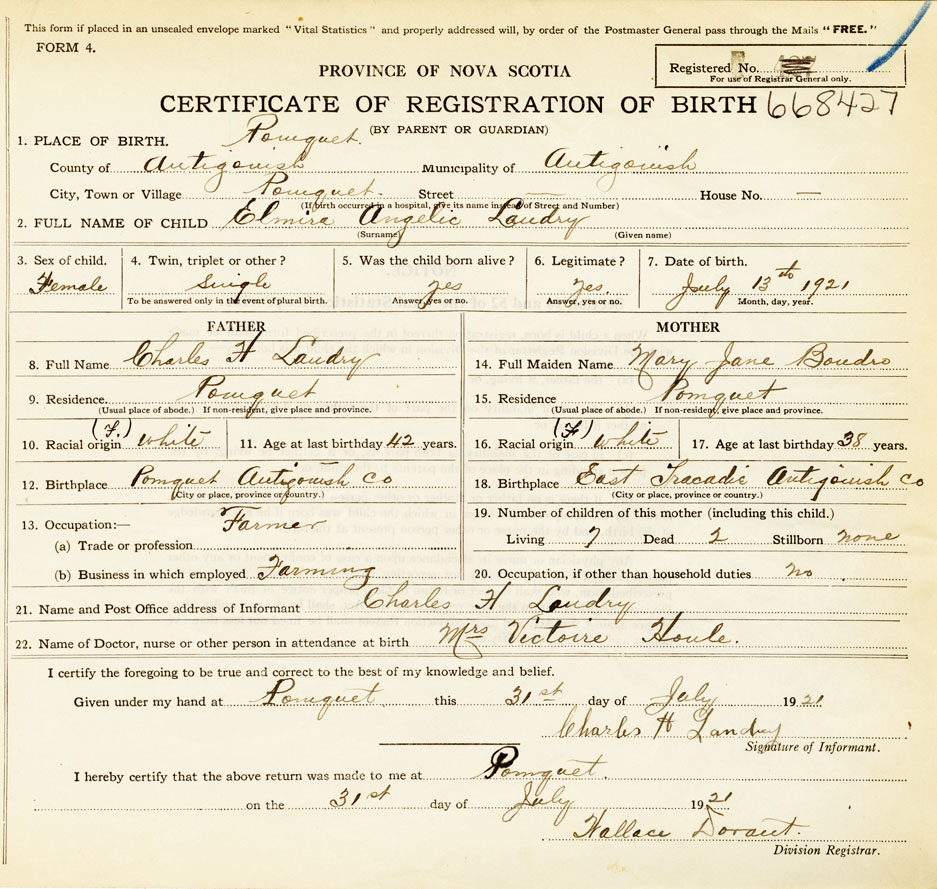 This form if placed in an unsealed envelope marked "Vital Statistics" and properly addressed will, by order of the Postmaster General pass through the Mails "FREE."
FORM 4.
Registered No.
For use of Registrar General only.
PROVINCE OF NOVA SCOTIA
CERTIFICATE OF REGISTRATION OF BIRTH 668427
(BY PARENT OR GUARDIAN)
1. PLACE OF BIRTH. Pomquet.
County of Antigonish Municipality of Antigonish
City, Town or Village Pomquet. Street — House No. —
(If birth occurred in a hospital, give its name instead of Street and Number)
2. FULL NAME OF CHILD Elmira Angelic Landry
(Surname) (Given name)
3. Sex of child. 4. Twin, triplet or other? 5. Was the child born alive? 6. Legitimate? 7. Date of birth.
Female Single yes yes. July 13th 1921
To be answered only in the event of plural birth. Answer, yes or no. Answer, yes or no. Month, day, year.
FATHER MOTHER
8. Full Name Charles H Landry 14. Full Maiden Name Mary Jane Boudro
9. Residence. Pomquet 15. Residence Pomquet
(Usual place of abode.) If non-resident, give place and province. (Usual place of abode.) If non-resident, give place and province.
10. Racial origin (F.) White 11. Age at last birthday 42 years. 16. Racial origin (F) White 17. Age at last birthday 38 years.
12. Birthplace Pomquet Antigonish Co 18. Birthplace East Tracadie Antigonish Co
(City or place, province or country.) (City or place, province or country.)
13. Occupation:— Farmer 19. Number of children of this mother (including this child.)
(a) Trade or profession Living 7 Dead 2 Stillborn none
(b) Business in which employed Farming 20. Occupation, if other than household duties no
21. Name and Post Office address of Informant Charles H Landry
22. Name of Doctor, nurse or other person in attendance at birth Mrs Victoire Houle.
I certify the foregoing to be true and correct to the best of my knowledge and belief.
Given under my hand at Pomquet this 31st day of July 1921
Charles H Landry
Signature of Informant.
I hereby certify that the above return was made to me at Pomquet.
on the 31st day of July 1921
Wallace Dorant.
Division Registrar.